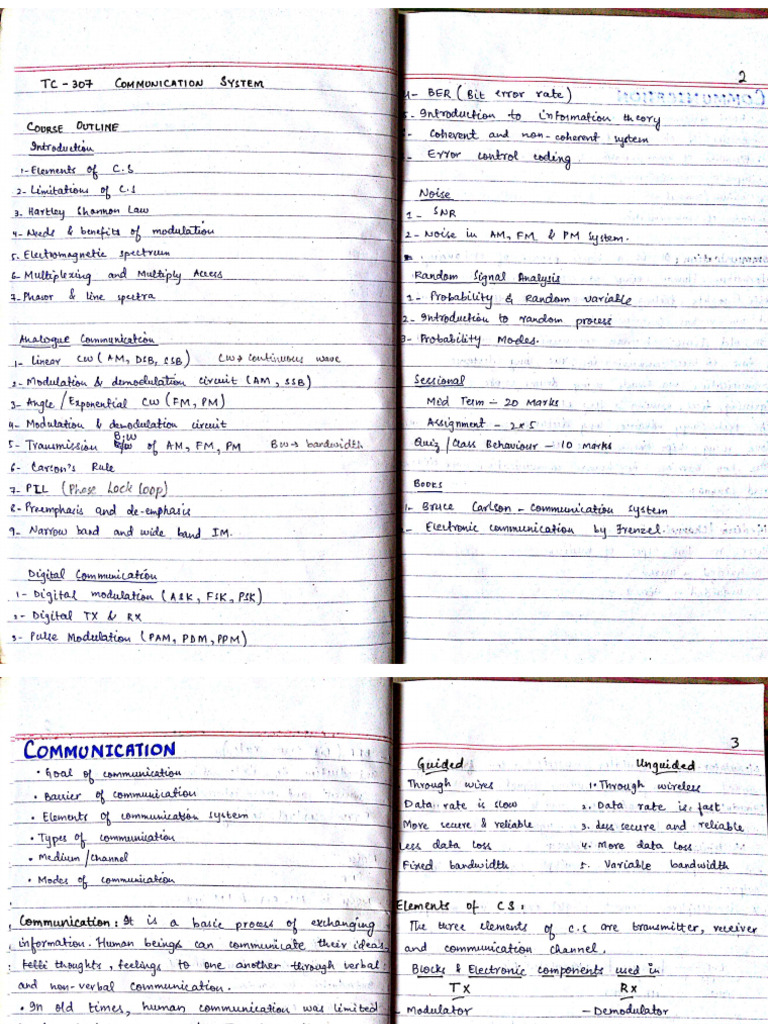 TC - 307 COMMUNICATION SYSTEM
COURSE OUTLINE
Introduction
1- Elements of C.S
2- Limitations of C.S
3. Hartley Shannon Law
4- Needs & benefits of modulation
5. Electromagnetic spectrum
6- Multiplexing and Multiply Access
7- Phasor & line spectra
Analogue Communication
1- Linear CW (AM, DSB, SSB) CW → continuous wave
2- Modulation & demodulation circuit (AM, SSB)
3- Angle / Exponential CW (FM, PM)
4- Modulation & demodulation circuit
5- Transmission B.W of AM, FM, PM BW → bandwidth
6- Carson's Rule
7- PLL (Phase Lock Loop)
8- Preemphasis and de-emphasis
9- Narrow band and wide band IM.
Digital Communication
1- Digital modulation (ASK, FSK, PSK)
2- Digital TX & RX
3- Pulse Modulation (PAM, PDM, PPM)
2
4- BER (Bit error rate)
5- Introduction to information theory
- Coherent and non-coherent system
- Error control coding
Noise
1- SNR
2- Noise in AM, FM & PM System.
Random Signal Analysis
1- Probability & Random variable
2- Introduction to random process
3- Probability Modes.
Seccional
Mid Term - 20 Marks
Assignment - 2*5
Quiz / Class Behaviour - 10 marks
BOOKS
1- Bruce Carlson - communication system
- Electronic communication by Frenzel.
COMMUNICATION
• Goal of communication
• Barrier of communication
• Elements of communication system
• Types of communication
• Medium/channel
• Modes of communication
Communication: It is a basic process of exchanging
information. Human beings can communicate their ideas
thoughts, feelings to one another through verbal
and non-verbal communication.
• In old times, human communication was limited
3
Guided Unguided
Through wires 1. Through wireless
Data rate is slow 2. Data rate is fast
More secure & reliable 3. less secure and reliable
Less data loss 4. More data loss
Fixed bandwidth 5. Variable bandwidth
Elements of C.S:
The three elements of C.S are transmitter, receiver
and communication channel.
Blocks & Electronic components used in
TX RX
- Modulator - Demodulator